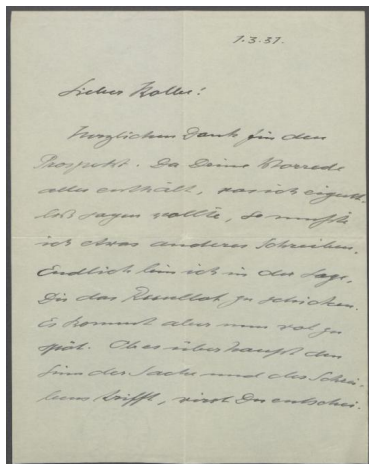 1.3.37.
Lieber Koller!
Herzlichen Dank für den
Prospekt. Da Deine Vorrede
alles enthält, was ich eigent-
lich sagen wollte, so mußte
ich etwas anderes schreiben.
Endlich bin ich in der Lage,
Dir das Resultat zu schicken.
Es kommt aber nun wol zu
spät. Ob es überhaupt den
Sinn der Sache und des Schrei-
bens trifft, wirst Du entschei-